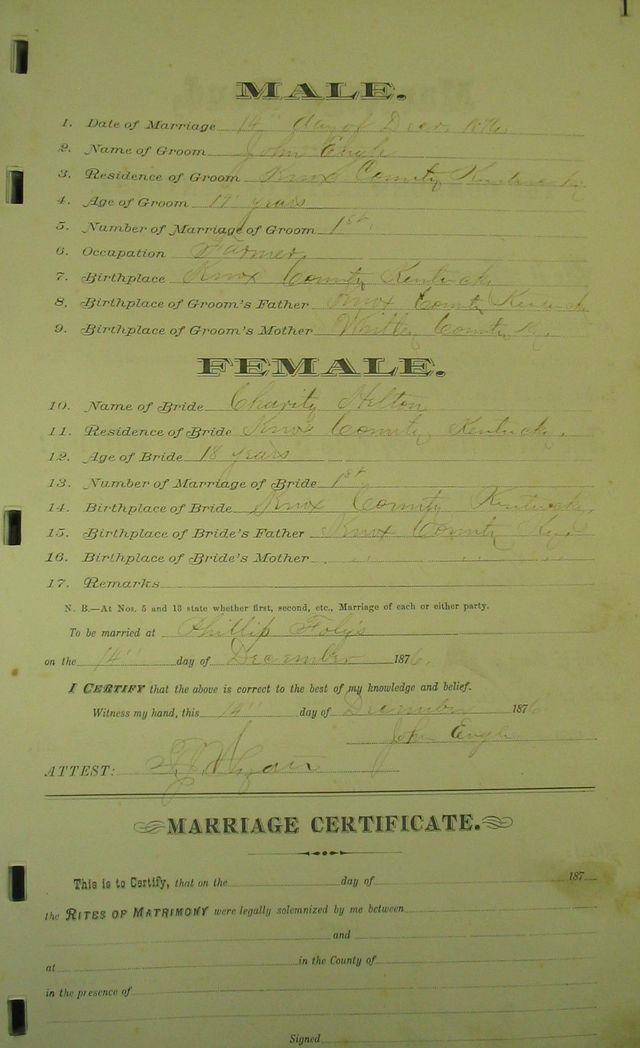 1
MALE.
1. Date of Marriage 14" day of Decr 1876
2. Name of Groom John Engle
3. Residence of Groom Knox County Kentucky
4. Age of Groom years
5. Number of Marriage of Groom 1st.
6. Occupation Farmer
7. Birthplace Knox County Kentucky
8. Birthplace of Groom's Father Knox County Kentucky
9. Birthplace of Groom's Mother Whitley County Ky.
FEMALE.
10. Name of Bride Charity Hilton
11. Residence of Bride Knox County Kentucky.
12. Age of Bride 18 years
13. Number of Marriage of Bride 1st
14. Birthplace of Bride Knox County Kentucky
15. Birthplace of Bride's Father Knox County
16. Birthplace of Bride's Mother
17. Remarks
N. B.—At Nos. 5 and 13 state whether first, second, etc., Marriage of each or either party.
To be married at Phillip Foly's
on the 14" day of December 1876.
I CERTIFY that the above is correct to the best of my knowledge and belief.
Witness my hand, this 14" day of December 1876
John Engle
ATTEST:
MARRIAGE CERTIFICATE.
This is to Certify, that on the day of 187
the RITES OF MATRIMONY were legally solemnized by me between
and
at in the County of
in the presence of
Signed